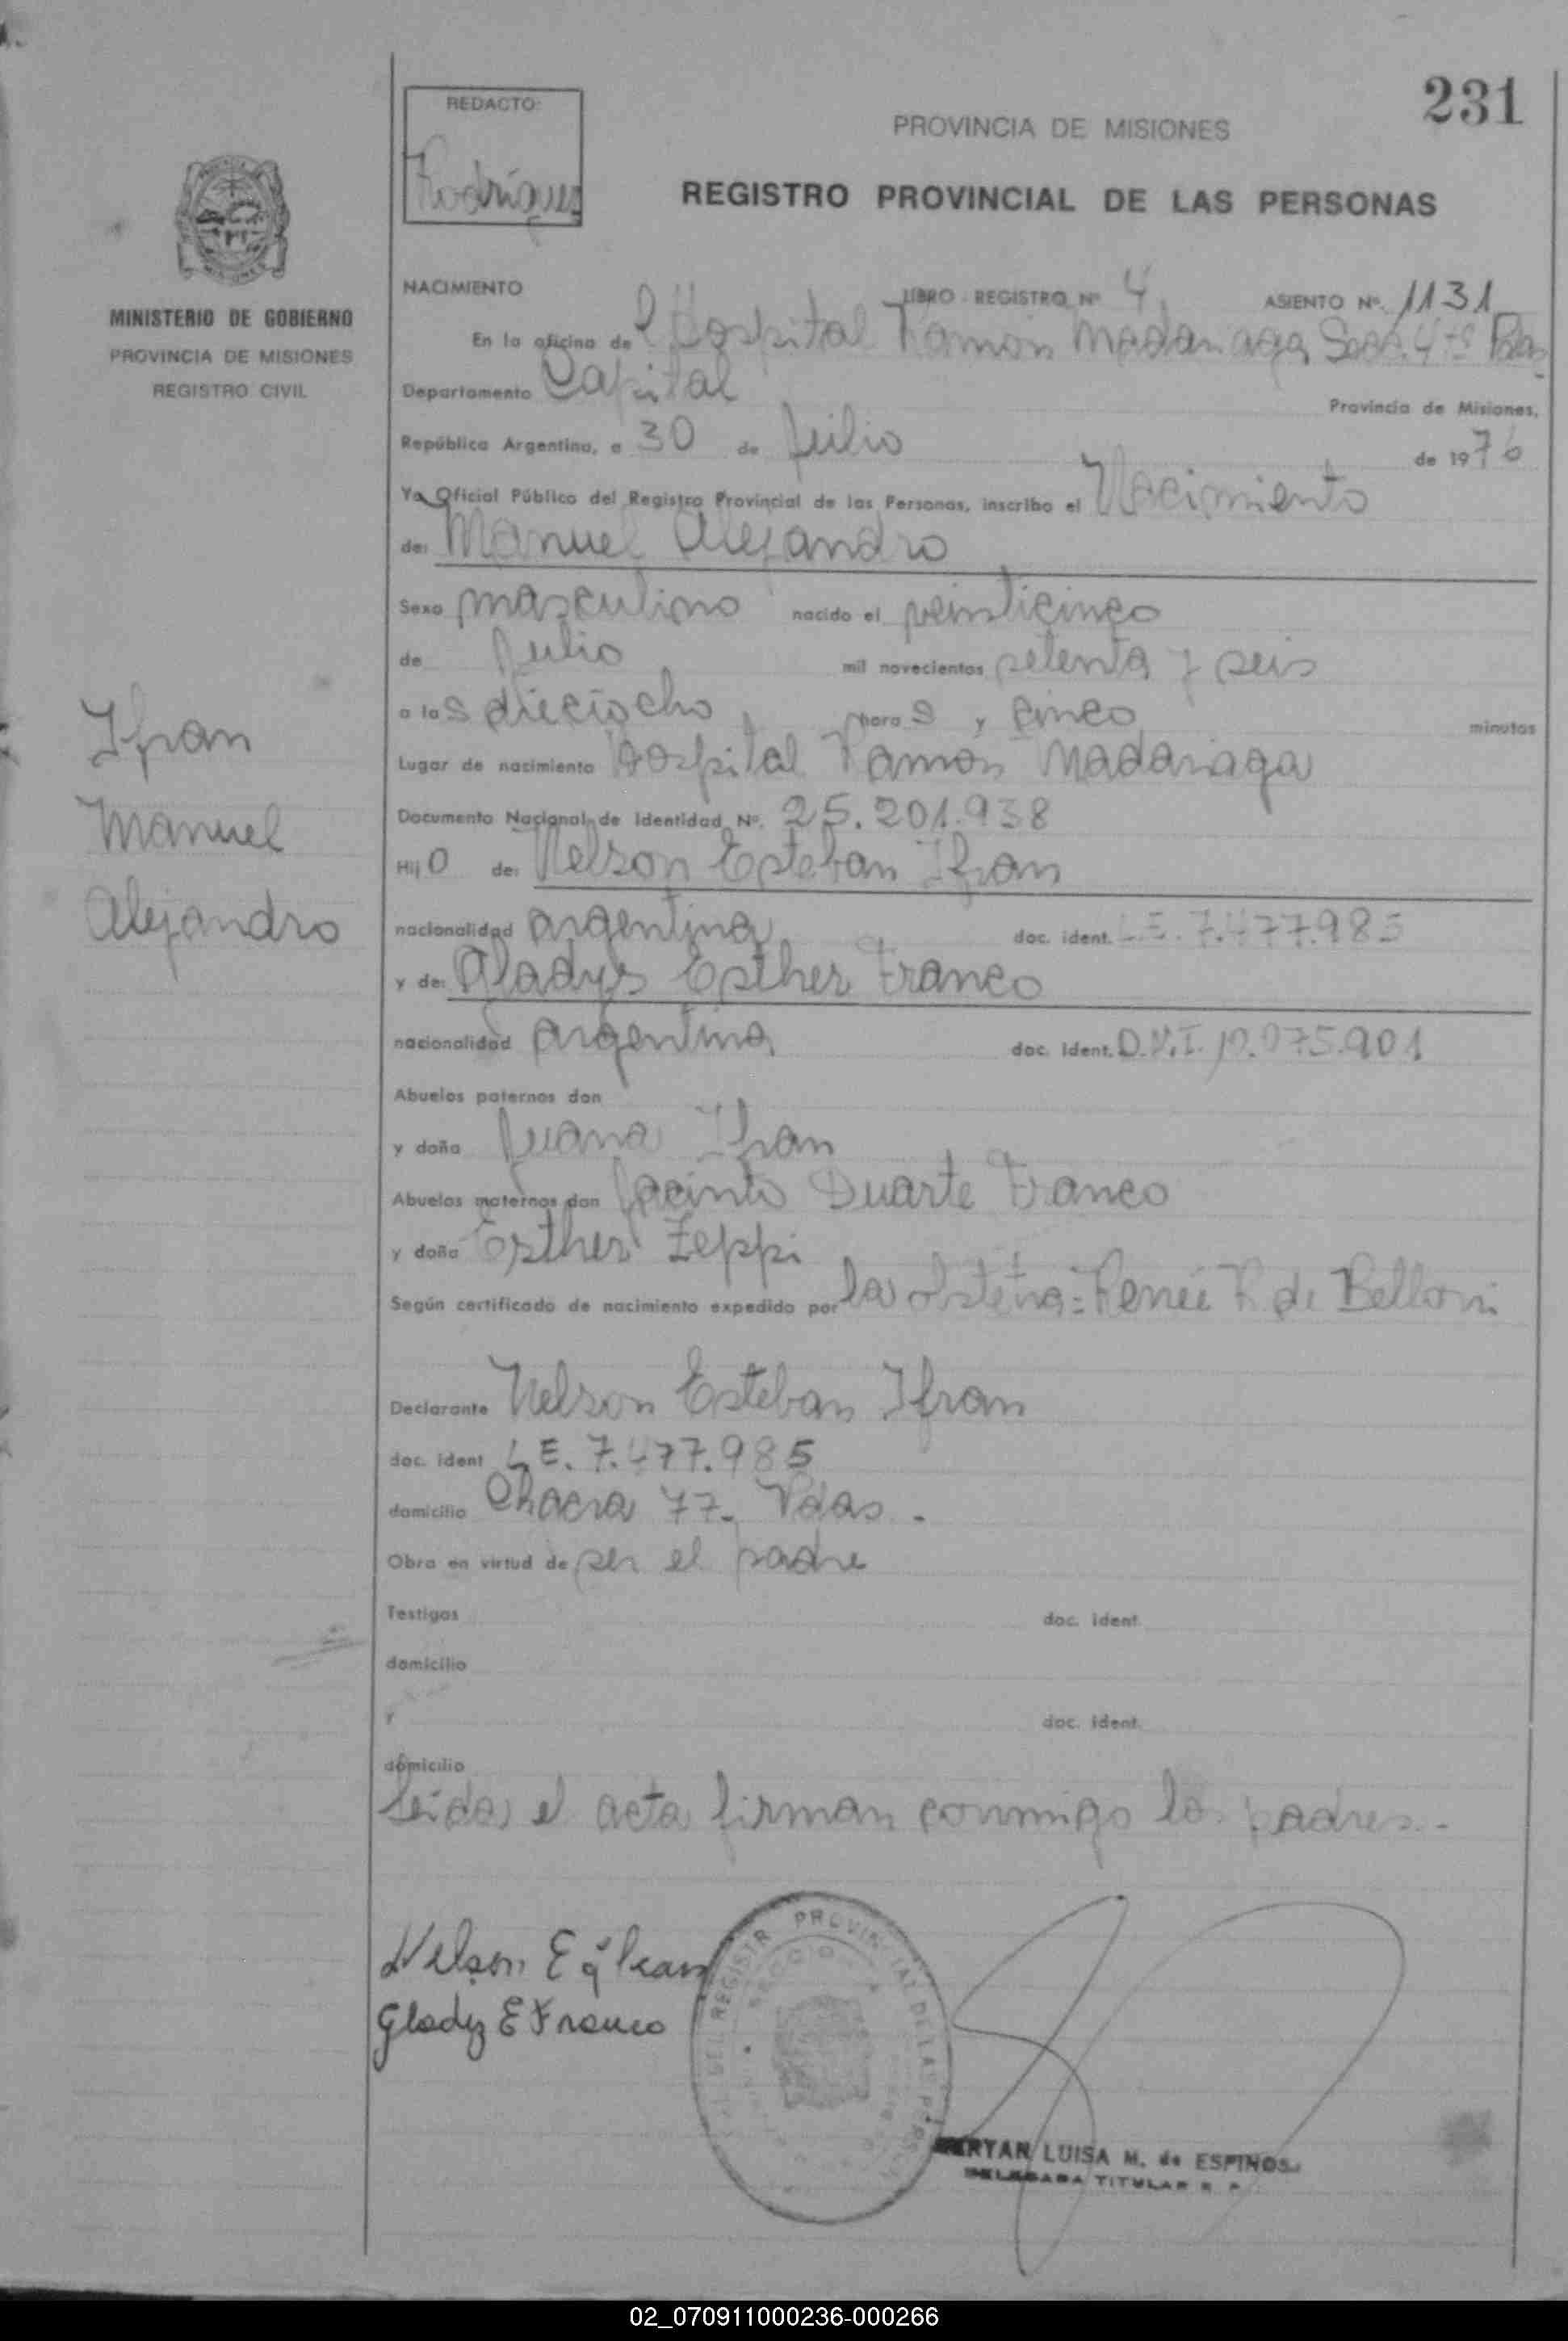 231
REDACTO:
Rodríguez
PROVINCIA DE MISIONES
REGISTRO PROVINCIAL DE LAS PERSONAS
MINISTERIO DE GOBIERNO
PROVINCIA DE MISIONES
REGISTRO CIVIL
NACIMIENTO LIBRO - REGISTRO Nº 4 ASIENTO Nº 1131
En la oficina del Hospital Ramón Madariaga Secc. 4ta Pdas.
Departamento Capital Provincia de Misiones,
República Argentina, a 30 de Julio de 1976
Yo, Oficial Público del Registro Provincial de las Personas, inscribo el Nacimiento
de: Manuel Alejandro
Sexo masculino nacido el veinticinco
de Julio mil novecientos setenta y seis
a las dieciocho horas y cinco minutos
Lugar de nacimiento Hospital Ramón Madariaga
Documento Nacional de Identidad Nº. 25.201.938
Hijo de: Nelson Esteban Ifran
nacionalidad argentina doc. ident. L.E. 7.477.985
y de: Gladys Esther Franco
nacionalidad argentina doc. ident. D.N.I. 10.075.901
Abuelos paternos don
y doña Juana Ifran
Abuelos maternos don Jacinto Duarte Franco
y doña Esther Zeppi
Según certificado de nacimiento expedido por la obstetra: Renée R. de Belloni
Declarante Nelson Esteban Ifran
doc. ident L.E. 7.477.985
domicilio Chacra 77. Pdas.
Obra en virtud de ser el padre
Testigos doc. ident.
domicilio
y doc. ident.
domicilio
Leida el acta firman conmigo los padres.-
Ifran
Manuel
Alejandro
Nelson E
Gladyz E Franco
REGISTR PROVINCIAL DE LAS
LUISA M. de ESPINOS
TITULAR
02_070911000236-000266